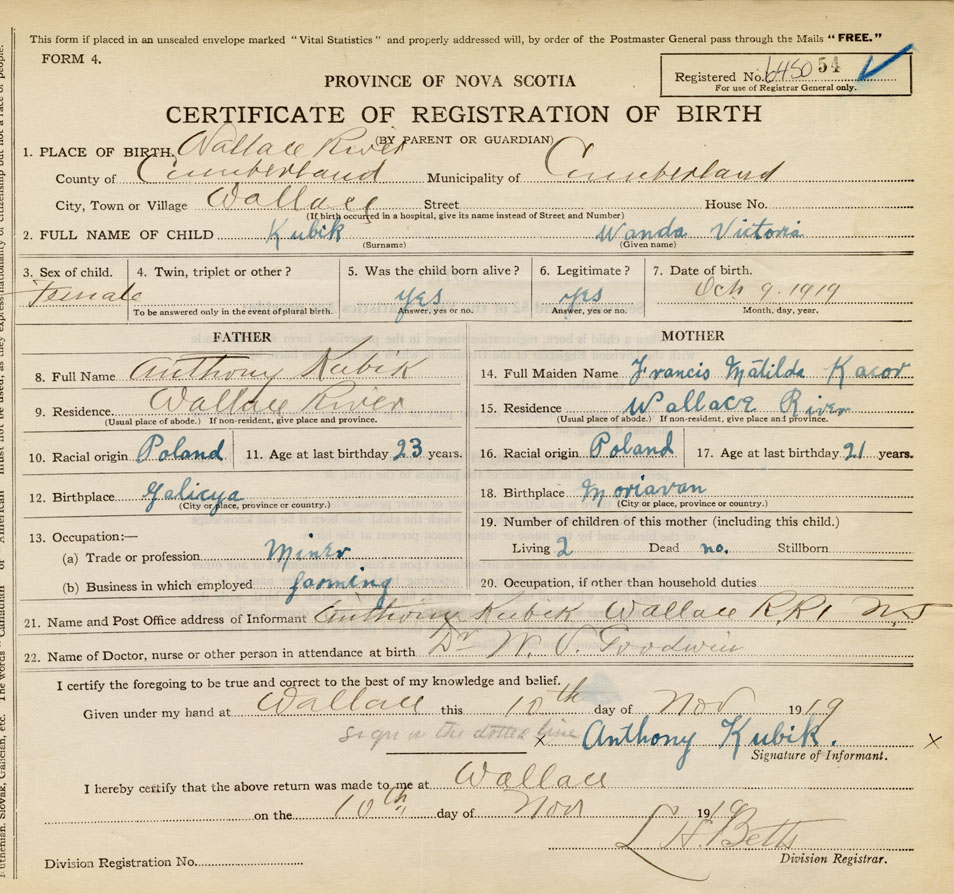 This form if placed in an unsealed envelope marked "Vital Statistics" and properly addressed will, by order of the Postmaster General pass through the Mails "FREE."
FORM 4.
Registered No. 6450 54
For use of Registrar General only.
PROVINCE OF NOVA SCOTIA
CERTIFICATE OF REGISTRATION OF BIRTH
(BY PARENT OR GUARDIAN)
1. PLACE OF BIRTH, Wallace River
County of Cumberland Municipality of Cumberland
City, Town or Village Wallace Street House No.
(If birth occurred in a hospital, give its name instead of Street and Number)
2. FULL NAME OF CHILD Kubik Wanda Victoria
(Surname) (Given name)
3. Sex of child. 4. Twin, triplet or other? 5. Was the child born alive? 6. Legitimate? 7. Date of birth.
Female yes yes Oct 9. 1919
To be answered only in the event of plural birth. Answer, yes or no. Answer, yes or no. Month, day, year.
FATHER
8. Full Name Anthony Kubik
9. Residence Wallace River
(Usual place of abode.) If non-resident, give place and province.
10. Racial origin Poland 11. Age at last birthday 23 years.
12. Birthplace Galicya
(City or place, province or country.)
13. Occupation:—
(a) Trade or profession Miner
(b) Business in which employed farming
MOTHER
14. Full Maiden Name Francis Matilda Kacor
15. Residence Wallace River
(Usual place of abode.) If non-resident, give place and province.
16. Racial origin Poland 17. Age at last birthday 21 years.
18. Birthplace Moriavan
(City or place, province or country.)
19. Number of children of this mother (including this child.)
Living 2 Dead no. Stillborn
20. Occupation, if other than household duties
21. Name and Post Office address of Informant Anthony Kubik Wallace R.R1 N.S
22. Name of Doctor, nurse or other person in attendance at birth Dr W. V. Goodwin
I certify the foregoing to be true and correct to the best of my knowledge and belief.
Given under my hand at Wallace this 10th day of Nov 1919
sign on the dotted line x Anthony Kubik. x
Signature of Informant.
I hereby certify that the above return was made to me at Wallace
on the 10th day of Nov 1919
L H. Betts
Division Registration No. Division Registrar.